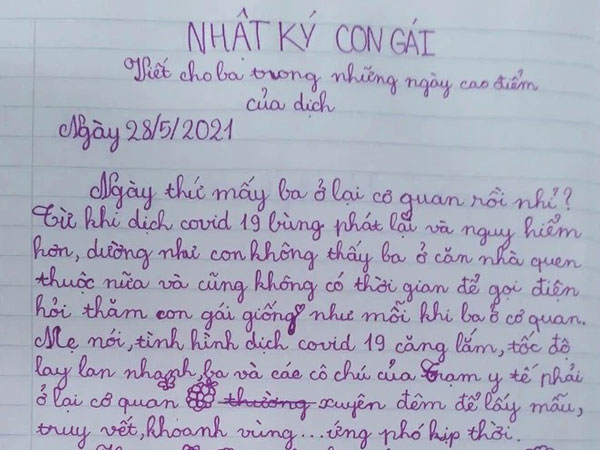 NHẬT KÝ CON GÁI
Viết cho ba trong những ngày cao điểm
của dịch
Ngày 28/5/2021
Ngày thứ mấy ba ở lại cơ quan rồi nhỉ?
Từ khi dịch covid 19 bùng phát lại và nguy hiểm
hơn, dường như con không thấy ba ở căn nhà quen
thuộc nữa và cũng không có thời gian để gọi điện
hỏi thăm con gái giống như mỗi khi ba ở cơ quan.
Mẹ nói, tình hình dịch covid 19 căng lắm, tốc độ
lây lan nhanh, ba và các cô chú của Trạm y tế phải
ở lại cơ quan thường xuyên đêm để lấy mẫu,
truy vết, khoanh vùng...ứng phó kịp thời.